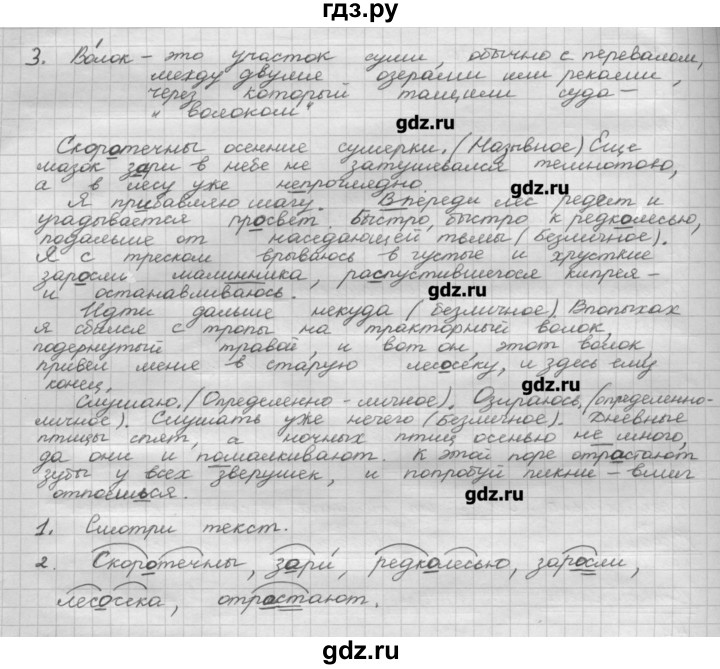 гдз.ру
3. Во́лок – это участок суши, обычно с перевалом,
между двумя озерами или реками,
через который тащили суда –
"волоком"
gdz.ru
Скоротечны осенние сумерки. (Назывное) Еще
мазок зари в небе не затушевался темнотою,
а в лесу уже непроглядно.
Я прибавляю шагу. Впереди лес редеет и
угадывается просвет. Быстро, быстро к редколесью,
подальше от наседающей тьмы (безличное).
Я с треском врываюсь в густые и хрусткие
заросли малинника, распустившегося кипрея –
и останавливаюсь.
gdz.ru
Идти дальше некуда (безличное). Впопыхах
я сбился с тропы на тракторный волок,
подернутый травой, и вот он, этот волок
привел меня в старую лесосеку, и здесь ему
конец.
Слушаю. (Определенно-личное). Озираюсь. (определенно-
личное). Слушать уже нечего (безличное). Дневные
птицы спят, а ночных птиц осенью не много,
да они и помалкивают. К этой поре отрастают
зубы у всех зверушек, и попробуй пикни – вмиг
отпоешься.
gdz.ru
1. Смотри текст.
2. Скоротечны, зари́, редколесью, заросли,
лесосека, отрастают.
gdz.ru